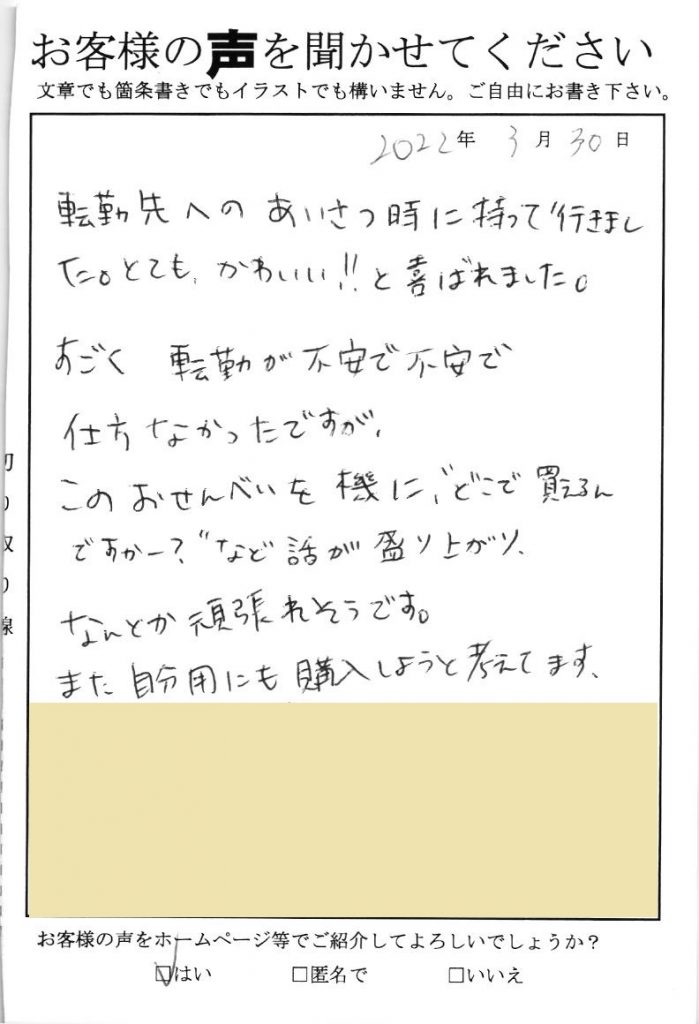 お客様の声を聞かせてください
文章でも箇条書きでもイラストでも構いません。ご自由にお書き下さい。
2022年 3月 30日
転勤先への あいさつ時に持って行きまし
た。とても、かわいい!!と喜ばれました。
すごく 転勤が不安で不安で
仕方なかったですが、
このおせんべいを機に、"どこで買えるん
ですかー?"など話が盛り上がり、
なんとか頑張れそうです。
また自分用にも購入しようと考えてます、
切り取り線
お客様の声をホームページ等でご紹介してよろしいでしょうか?
☑はい □匿名で □いいえ